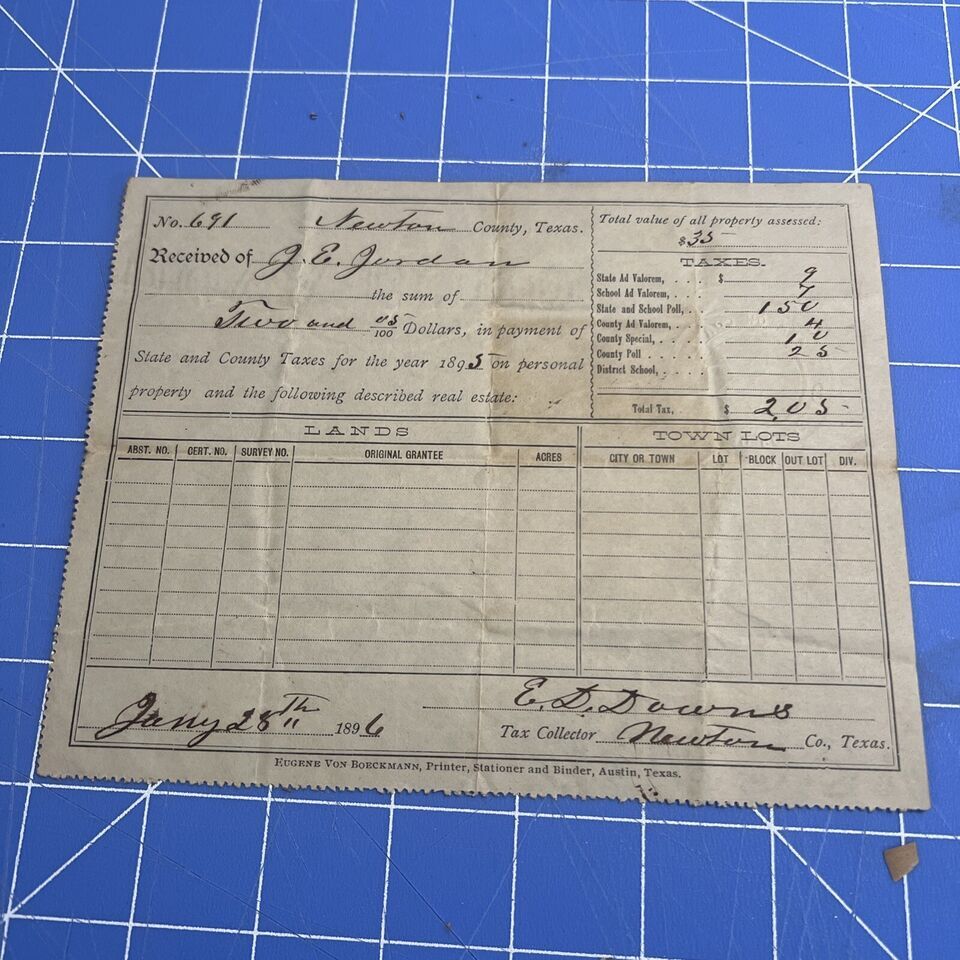 No. 691 Newton County, Texas.
Received of J. E. Jordan
the sum of
Two and 05/100 Dollars, in payment of
State and County Taxes for the year 1895 on personal
property and the following described real estate:
Total value of all property assessed:
$35
TAXES.
State Ad Valorem, . . . . $ 9
School Ad Valorem, . . . .
State and School Poll, . . 150
County Ad Valorem, . . . 4
County Special, . . . . . 10
County Poll . . . . . . 25
District School, . . . . .
Total Tax, $ 2,05
LANDS
TOWN LOTS
ABST. NO. CERT. NO. SURVEY NO. ORIGINAL GRANTEE ACRES CITY OR TOWN LOT BLOCK OUT LOT DIV.
Jany 28th 1896
E. D. Downs
Tax Collector Newton Co., Texas.
EUGENE VON BOECKMANN, Printer, Stationer and Binder, Austin, Texas.